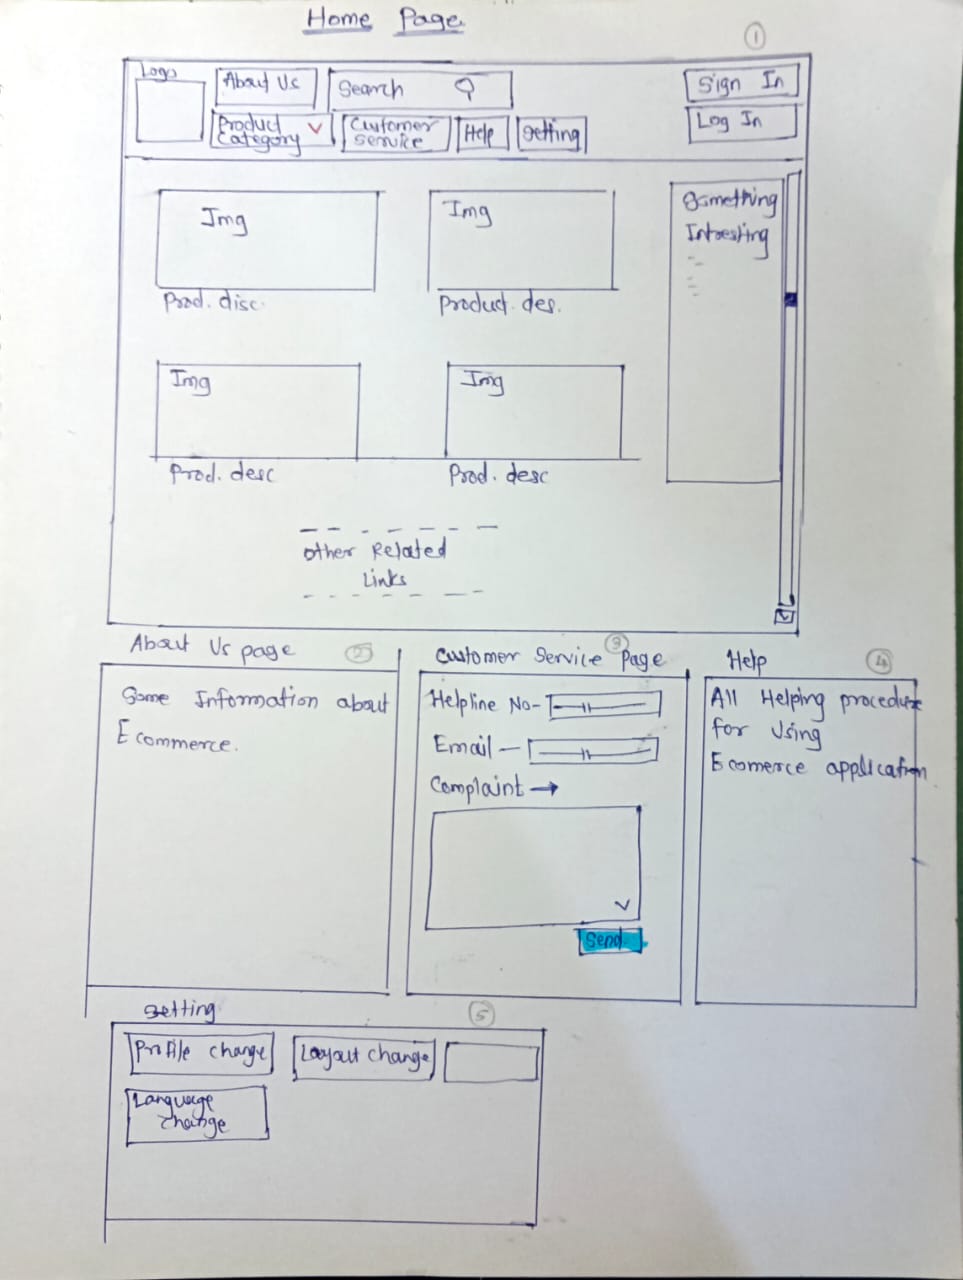 Home Page
1
Logo
About Us
Search
Sign In
Product
Category
Customer
Service
Help
Setting
Log In
Img
Img
Something
Intresting
Prod. disc.
Product. des.
Img
Img
Prod. desc
Prod. desc
Other Related
Links
About Us page
2
Some Information about
E commerce.
Customer Service Page
3
Helpline No-
Email -
Complaint →
Send
Help
4
All Helping procedure
for Using
Ecomerce application
Setting
5
Profile change
Layout change
Language
change